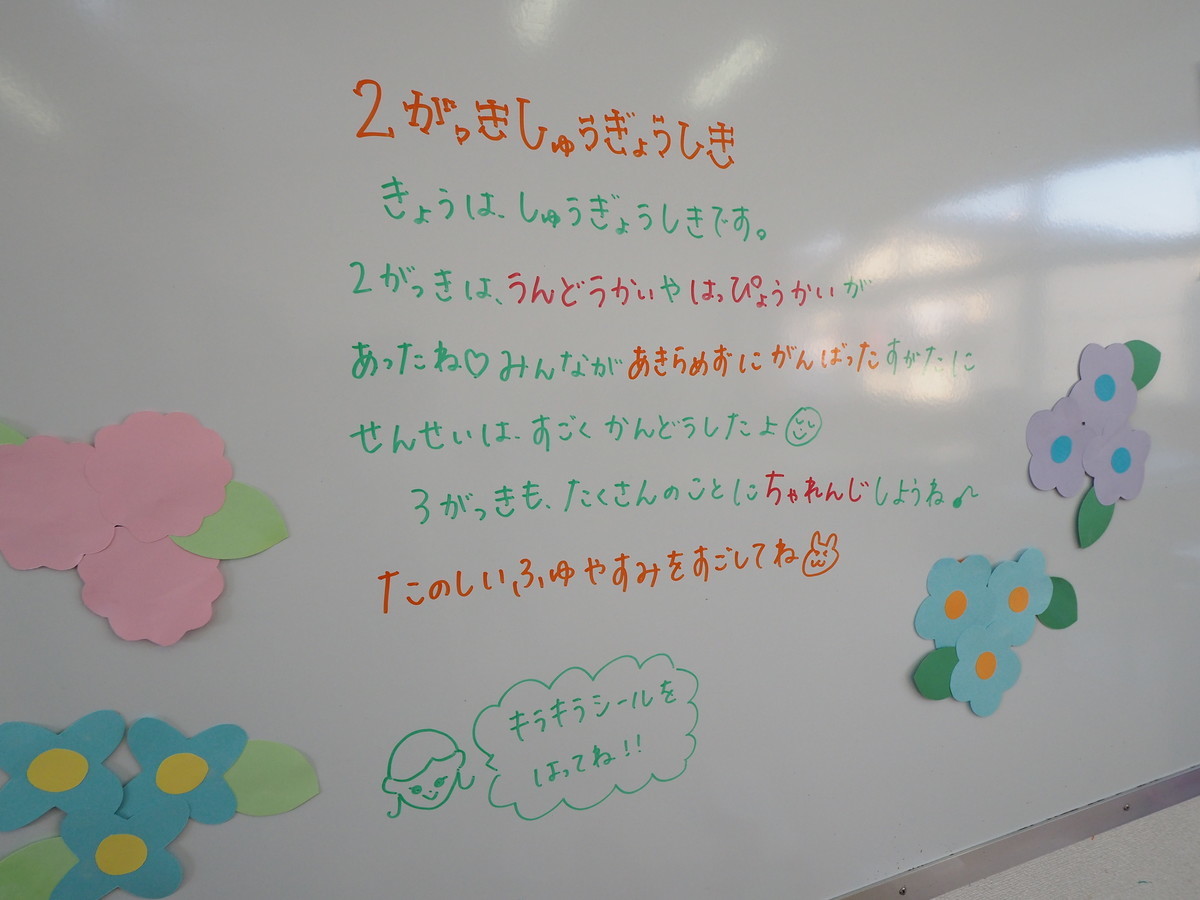 2がっきしゅうぎょうしき
きょうは、しゅうぎょうしきです。
2がっきは、うんどうかいやはっぴょうかいが
あったね♡みんながあきらめずにがんばったすがたに
せんせいは、すごくかんどうしたよ
3がっきも、たくさんのことにちゃれんじしようね♪
たのしいふゆやすみをすごしてね
キラキラシールを
はってね!!